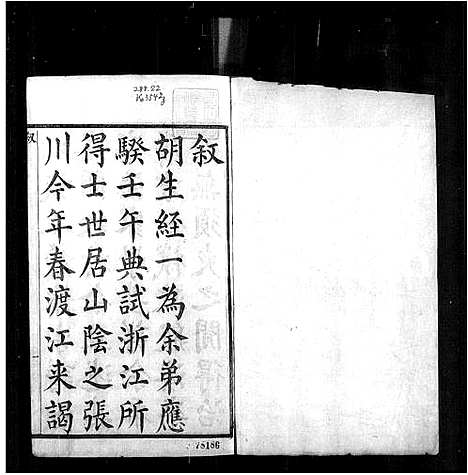 叙
胡生經一為余弟應
騤壬午典試浙江所
得士世居山陰之張
川今年春渡江来謁
叙
75186